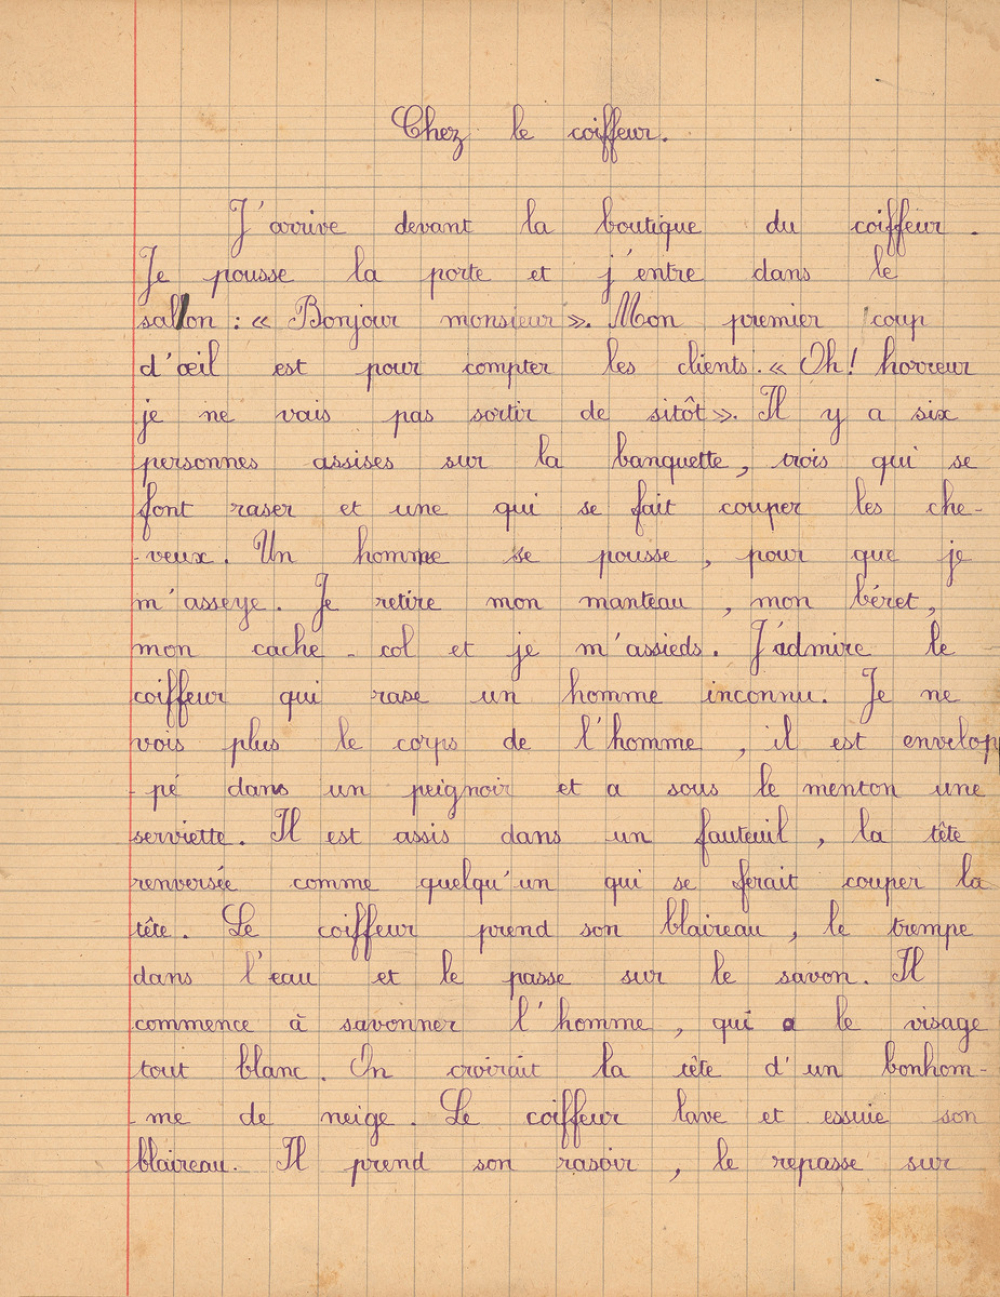 Chez le coiffeur.
J'arrive devant la boutique du coiffeur.
Je pousse la porte et j'entre dans le
salon : « Bonjour monsieur ». Mon premier coup
d'œil est pour compter les clients. « Oh! horreur
je ne vais pas sortir de sitôt ». Il y a six
personnes assises sur la banquette, trois qui se
font raser et une qui se fait couper les che-
-veux. Un homme se pousse, pour que je
m'asseye. Je retire mon manteau, mon béret,
mon cache-col et je m'assieds. J'admire le
coiffeur qui rase un homme inconnu. Je ne
vois plus le corps de l'homme, il est envelop
-pé dans un peignoir et a sous le menton une
serviette. Il est assis dans un fauteuil, la tête
renversée comme quelqu'un qui se ferait couper la
tête. Le coiffeur prend son blaireau, le trempe
dans l'eau et le passe sur le savon. Il
commence à savonner l'homme, qui a le visage
tout blanc. On croirait la tête d'un bonhom-
-me de neige. Le coiffeur lave et essuie son
blaireau. Il prend son rasoir, le repasse sur